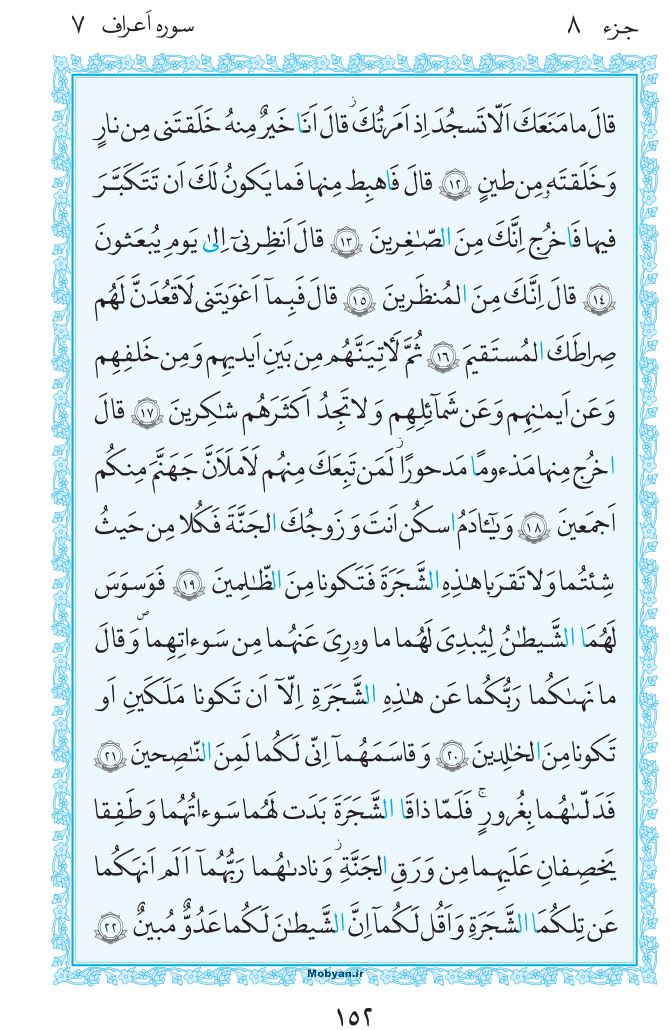 جزء ٨ سوره اَعراف ٧
قالَ ما مَنَعَكَ اَلّا تَسجُدَ اِذ اَمَرتُكَ ۖ قالَ اَنَا خَيرٌ مِنهُ خَلَقتَنى مِن نارٍ
وَ خَلَقتَهۥ مِن طينٍ ﴿١٢﴾ قالَ فَاهبِط مِنها فَما يَكونُ لَكَ اَن تَتَكَبَّرَ
فيها فَاخرُج اِنَّكَ مِنَ الصّٰغِرينَ ﴿١٣﴾ قالَ اَنظِرنىٓ اِلىٰ يَومِ يُبعَثونَ
﴿١٤﴾ قالَ اِنَّكَ مِنَ المُنظَرينَ ﴿١٥﴾ قالَ فَبِمآ اَغوَيتَنى لَاَقعُدَنَّ لَهُم
صِراطَكَ المُستَقيمَ ﴿١٦﴾ ثُمَّ لَأٓتِيَنَّهُم مِن بَينِ اَيديهِم وَ مِن خَلفِهِم
وَ عَن اَيمٰنِهِم وَ عَن شَمآئِلِهِم وَ لا تَجِدُ اَكثَرَهُم شٰكِرينَ ﴿١٧﴾ قالَ
اخرُج مِنها مَذءومًا مَدحورًا ۖ لَمَن تَبِعَكَ مِنهُم لَاَملَاَنَّ جَهَنَّمَ مِنكُم
اَجمَعينَ ﴿١٨﴾ وَ يٰٓـٔادَمُ اسكُن اَنتَ وَ زَوجُكَ الجَنَّةَ فَكُلا مِن حَيثُ
شِئتُما وَ لا تَقرَبا هٰذِهِ الشَّجَرَةَ فَتَكونا مِنَ الظّٰلِمينَ ﴿١٩﴾ فَوَسوَسَ
لَهُمَا الشَّيطٰنُ لِيُبدِىَ لَهُما ما وۥرِىَ عَنهُما مِن سَوءاتِهِما ۖ وَ قالَ
ما نَهىٰكُما رَبُّكُما عَن هٰذِهِ الشَّجَرَةِ اِلّآ اَن تَكونا مَلَكَينِ اَو
تَكونا مِنَ الخٰلِدينَ ﴿٢٠﴾ وَ قاسَمَهُمآ اِنّى لَكُما لَمِنَ النّٰصِحينَ ﴿٢١﴾
فَدَلّىٰهُما بِغُرورٍ ۚ فَلَمّا ذاقَا الشَّجَرَةَ بَدَت لَهُما سَوءاتُهُما وَ طَفِقا
يَخصِفانِ عَلَيهِما مِن وَرَقِ الجَنَّةِ ۖ وَ نادىٰهُما رَبُّهُمآ اَلَم اَنهَكُما
عَن تِلكُمَا الشَّجَرَةِ وَ اَقُل لَكُمآ اِنَّ الشَّيطٰنَ لَكُما عَدُوٌّ مُبينٌ ﴿٢٢﴾
Mobyan.ir
١٥٢